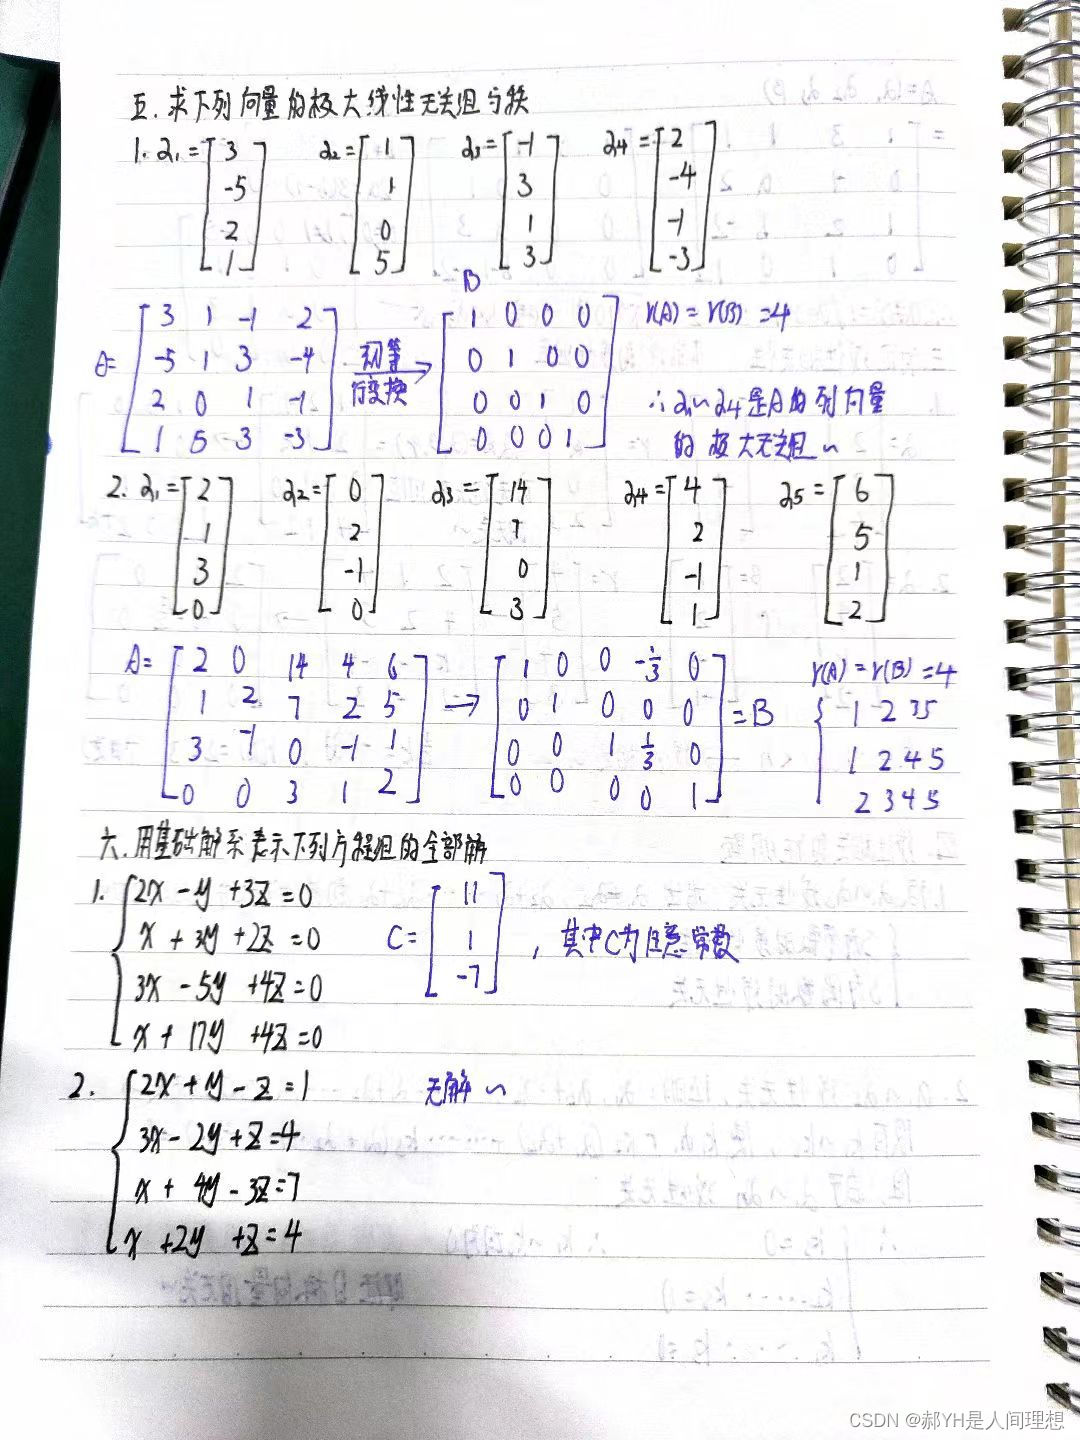 五.求下列向量的极大线性无关组与秩
1. α₁=[3 -5 2 1] α₂=[1 1 0 5] α₃=[-1 3 1 3] α₄=[2 -4 -1 -3]
B
A=[3 1 -1 2
-5 1 3 -4
2 0 1 -1
1 5 3 -3]
初等
行变换
[1 0 0 0
0 1 0 0
0 0 1 0
0 0 0 1]
r(A)=r(B)=4
∴α₁~α₄是A的列向量
的极大无关组~
2. α₁=[2 1 3 0] α₂=[0 2 -1 0] α₃=[14 7 0 3] α₄=[4 2 -1 1] α₅=[6 5 1 2]
A=[2 0 14 4 6
1 2 7 2 5
3 -1 0 -1 1
0 0 3 1 2]
→[1 0 0 -1/3 0
0 1 0 0 0
0 0 1 1/3 0
0 0 0 0 1]=B
r(A)=r(B)=4
{1 2 3 5
1 2 4 5
2 3 4 5
六.用基础解系表示下列方程组的全部解
1. {2x-y+3z=0
x+3y+2z=0
3x-5y+4z=0
x+17y+4z=0
C=[11 1 -7],其中C为任意常数
2. {2x+y-z=1
3x-2y+z=4
x+4y-3z=7
x+2y+z=4
无解~
CSDN @郝YH是人间理想